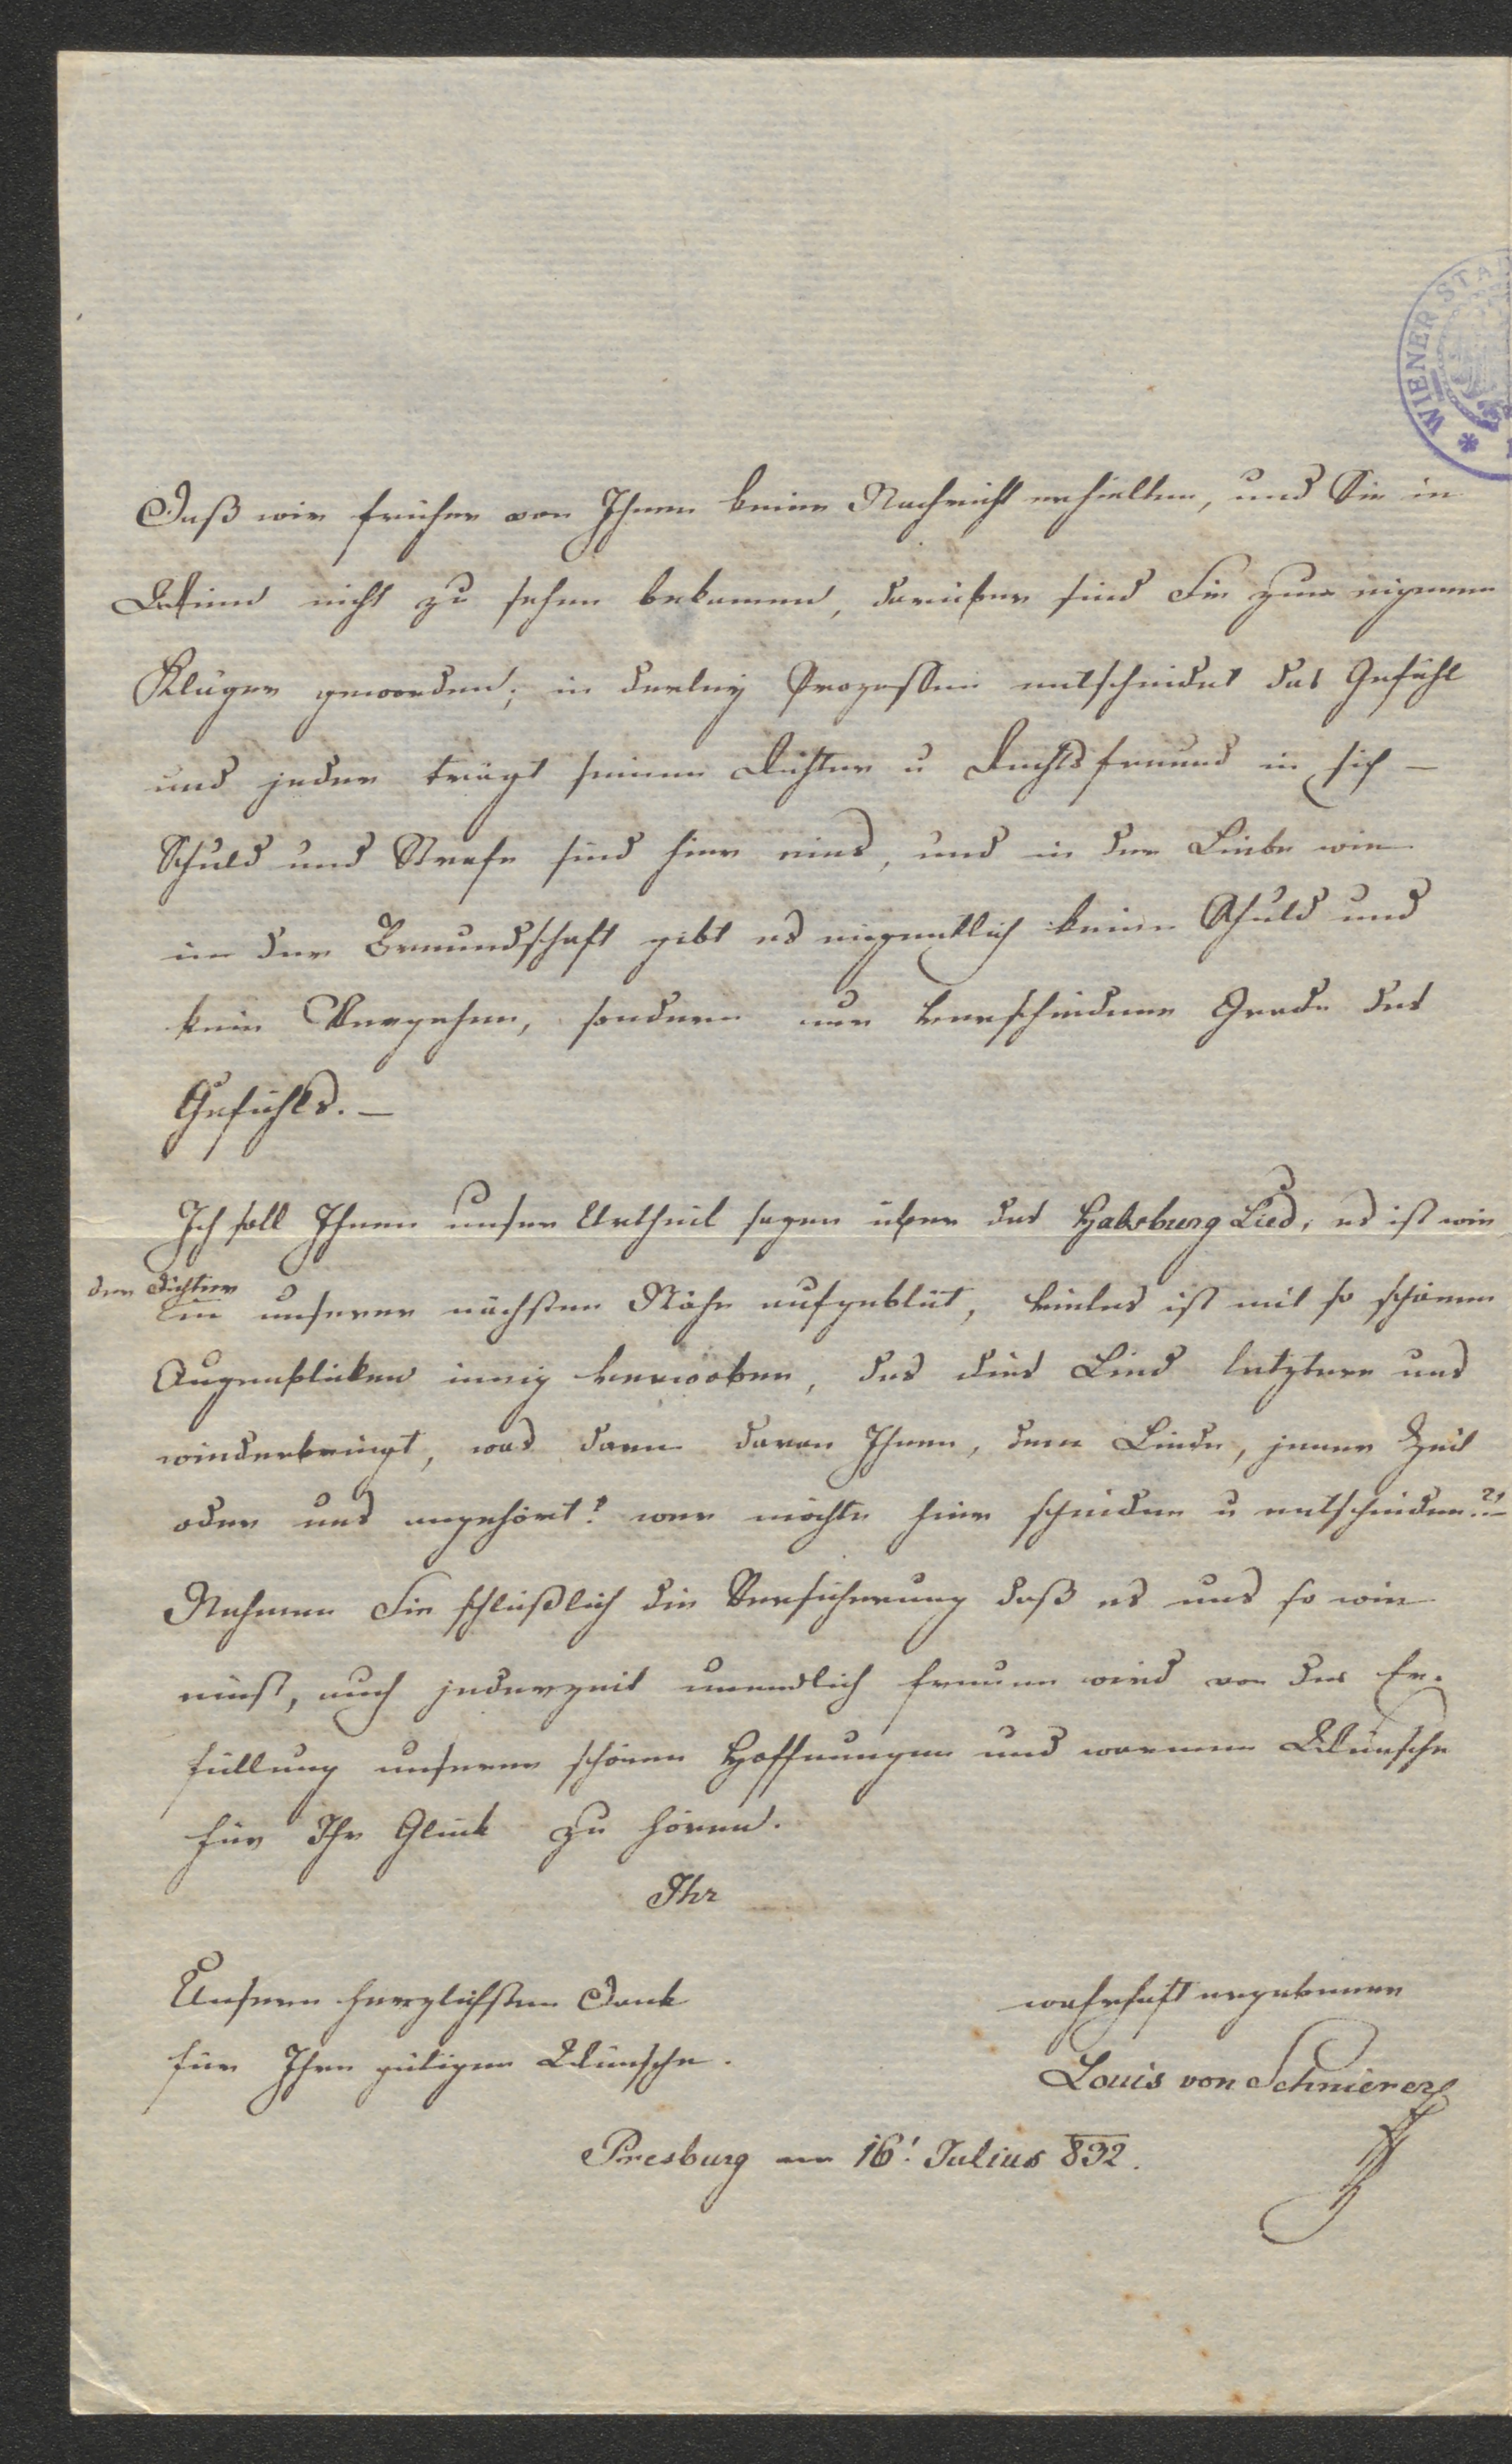 WIENER STA
Daß wir früher von Ihnen keine Nachricht erhielten, und Sie in
Wien nicht zu sehen bekamen, darüber sind Sie zum eigenen
Kläger geworden; in derley Prozessen entscheidet das Gefühl
und jeder trägt seinen Richter u Rechtsfreund in sich —
Schuld und Strafe sind hier eins, und in der Liebe wie
in der Freundschaft gibt es eigentlich keine Schuld und
kein Vergehen, sondern nur verschiedene Grade des
Gefühls. —
Ich soll Ihnen unser Urtheil sagen über das Habsburg Lied; es ist wie
der Dichter
in unserer nächsten Nähe aufgeblüt, vieles ist mit so schönen
Augenblicken innig verwoben, das dies Lied letztere uns
wiederbringt, was dann davon Ihnen, dem Liede, jener Zeit
oder uns angehört? wer möchte hier scheiden u entscheiden?! —
Nehmen Sie schlüßlich die Versicherung daß es uns so wie
einst, auch jederzeit unendlich freuen wird von der Er-
füllung unserer schönen Hoffnungen und warmen Wünsche
für Ihr Glück zu hören.
Ihr
Unsern herzlichsten Dank
für Ihre gütigen Wünsche.
wahrhaft ergebener
Louis von Schnierer
Presburg am 16! Julius 832.